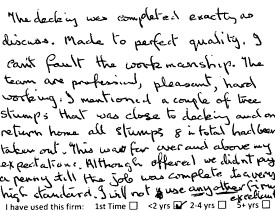 The decking was completed exactly as
discuss. Made to perfect quality. I
can't fault the workmanship. The
team are professinl, pleasant, hard
working. I mentioned a couple of tree
stumps that was close to decking and on
return home all stumps 8 in total had been
taken out. This was far over and above my
expectations. Although offered we didn't pay
a penny till the job was complete to a very
high standard. I will not use any other firm
excellent
I have used this firm: 1st Time <2 yrs 2-4 yrs 5+ yrs